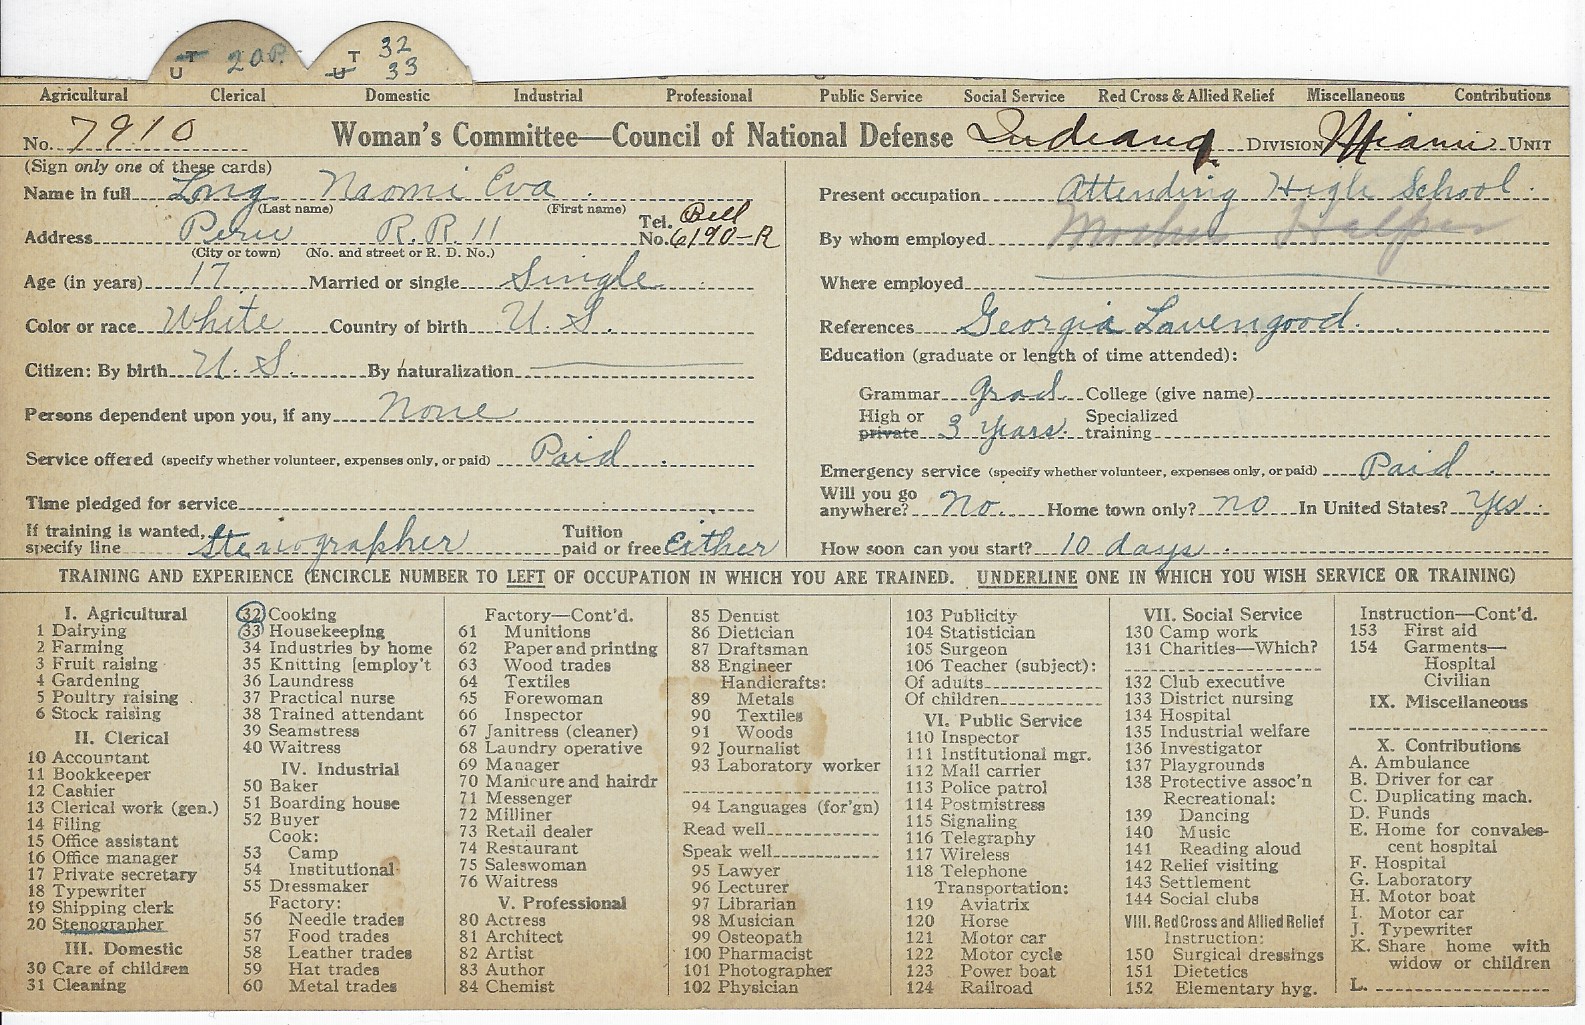 U T 20P. U T 32
33
Agricultural Clerical Domestic Industrial Professional Public Service Social Service Red Cross & Allied Relief Miscellaneous Contributions
No. 7910 Woman's Committee—Council of National Defense Indiana DIVISION Miami UNIT
(Sign only one of these cards)
Name in full Long Naomi Eva
(Last name) (First name)
Address Peru R.R. 11 Tel. No. Bell 6190-R
(City or town) (No. and street or R. D. No.)
Age (in years) 17 Married or single Single
Color or race White Country of birth U. S.
Citizen: By birth U. S. By naturalization
Persons dependent upon you, if any None
Service offered (specify whether volunteer, expenses only, or paid) Paid
Time pledged for service
If training is wanted, specify line Stenographer Tuition paid or free Either
Present occupation Attending High School.
By whom employed Mothers Helper
Where employed
References Georgia Lavengood.
Education (graduate or length of time attended):
Grammar Grad College (give name)
High or private 3 Years. Specialized training
Emergency service (specify whether volunteer, expenses only, or paid) Paid
Will you go anywhere? No. Home town only? No In United States? Yes.
How soon can you start? 10 days
TRAINING AND EXPERIENCE (ENCIRCLE NUMBER TO LEFT OF OCCUPATION IN WHICH YOU ARE TRAINED. UNDERLINE ONE IN WHICH YOU WISH SERVICE OR TRAINING)
I. Agricultural
1 Dairying
2 Farming
3 Fruit raising
4 Gardening
5 Poultry raising
6 Stock raising
II. Clerical
10 Accountant
11 Bookkeeper
12 Cashier
13 Clerical work (gen.)
14 Filing
15 Office assistant
16 Office manager
17 Private secretary
18 Typewriter
19 Shipping clerk
20 Stenographer
III. Domestic
30 Care of children
31 Cleaning
32 Cooking
33 Housekeeping
34 Industries by home
35 Knitting [employ't
36 Laundress
37 Practical nurse
38 Trained attendant
39 Seamstress
40 Waitress
IV. Industrial
50 Baker
51 Boarding house
52 Buyer
Cook:
53 Camp
54 Institutional
55 Dressmaker
Factory:
56 Needle trades
57 Food trades
58 Leather trades
59 Hat trades
60 Metal trades
Factory—Cont'd.
61 Munitions
62 Paper and printing
63 Wood trades
64 Textiles
65 Forewoman
66 Inspector
67 Janitress (cleaner)
68 Laundry operative
69 Manager
70 Manicure and hairdr
71 Messenger
72 Milliner
73 Retail dealer
74 Restaurant
75 Saleswoman
76 Waitress
V. Professional
80 Actress
81 Architect
82 Artist
83 Author
84 Chemist
85 Dentist
86 Dietician
87 Draftsman
88 Engineer
Handicrafts:
89 Metals
90 Textiles
91 Woods
92 Journalist
93 Laboratory worker
94 Languages (for'gn)
Read well
Speak well
95 Lawyer
96 Lecturer
97 Librarian
98 Musician
99 Osteopath
100 Pharmacist
101 Photographer
102 Physician
103 Publicity
104 Statistician
105 Surgeon
106 Teacher (subject):
Of adults
Of children
VI. Public Service
110 Inspector
111 Institutional mgr.
112 Mail carrier
113 Police patrol
114 Postmistress
115 Signaling
116 Telegraphy
117 Wireless
118 Telephone
Transportation:
119 Aviatrix
120 Horse
121 Motor car
122 Motor cycle
123 Power boat
124 Railroad
VII. Social Service
130 Camp work
131 Charities—Which?
132 Club executive
133 District nursing
134 Hospital
135 Industrial welfare
136 Investigator
137 Playgrounds
138 Protective assoc'n
Recreational:
139 Dancing
140 Music
141 Reading aloud
142 Relief visiting
143 Settlement
144 Social clubs
VIII. Red Cross and Allied Relief
Instruction:
150 Surgical dressings
151 Dietetics
152 Elementary hyg.
Instruction—Cont'd.
153 First aid
154 Garments—
Hospital
Civilian
IX. Miscellaneous
X. Contributions
A. Ambulance
B. Driver for car
C. Duplicating mach.
D. Funds
E. Home for convales-
cent hospital
F. Hospital
G. Laboratory
H. Motor boat
I. Motor car
J. Typewriter
K. Share home with
widow or children
L.